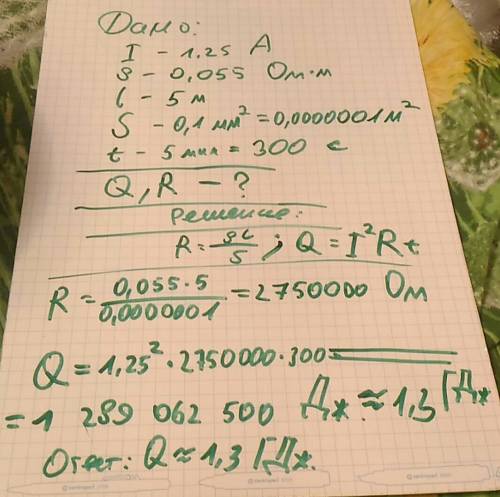 Дано:
I - 1.25 А
ρ - 0,055 Ом·м
l - 5 м
S - 0,1 мм² = 0,0000001 м²
t - 5 мин = 300 с
Q, R - ?
Решение:
R = ρl/S ; Q = I²Rt
R = 0,055·5/0,0000001 = 2750000 Ом
Q = 1,25²·2750000·300 =
= 1 289 062 500 Дж ≈ 1,3 ГДж
Ответ: Q ≈ 1,3 ГДж.